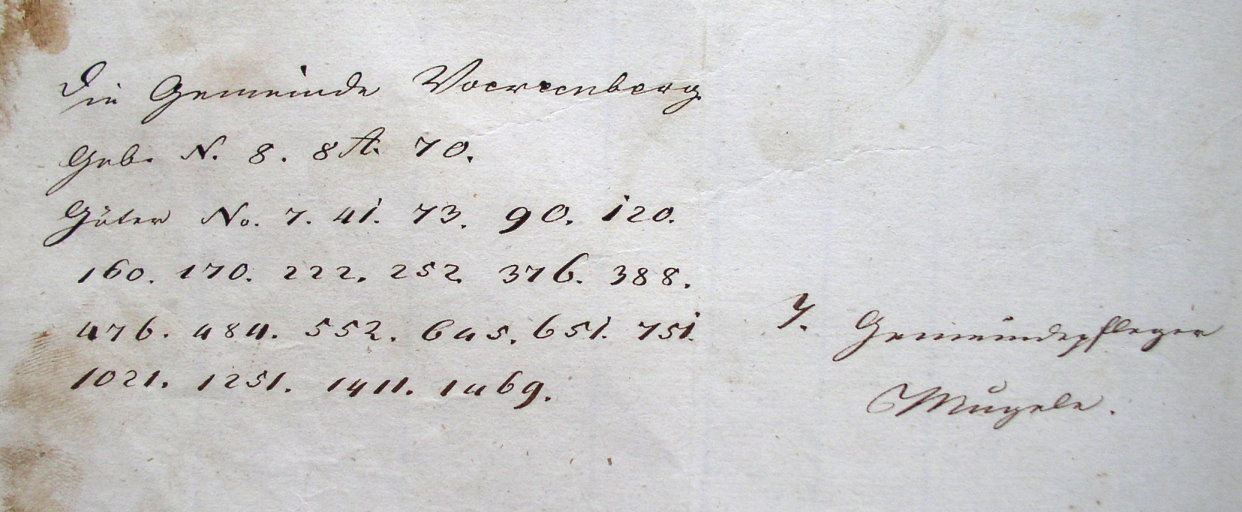 Die Gemeinde Vorrenberg
Geb. N. 8. 8 A. 70.
Güter No. 7. 41. 73. 90. 120.
160. 170. 222. 252. 376. 388.
476. 484. 552. 645. 651. 751.
1021. 1251. 1411. 1469.
T. Gemeindepfleger
Mugele.